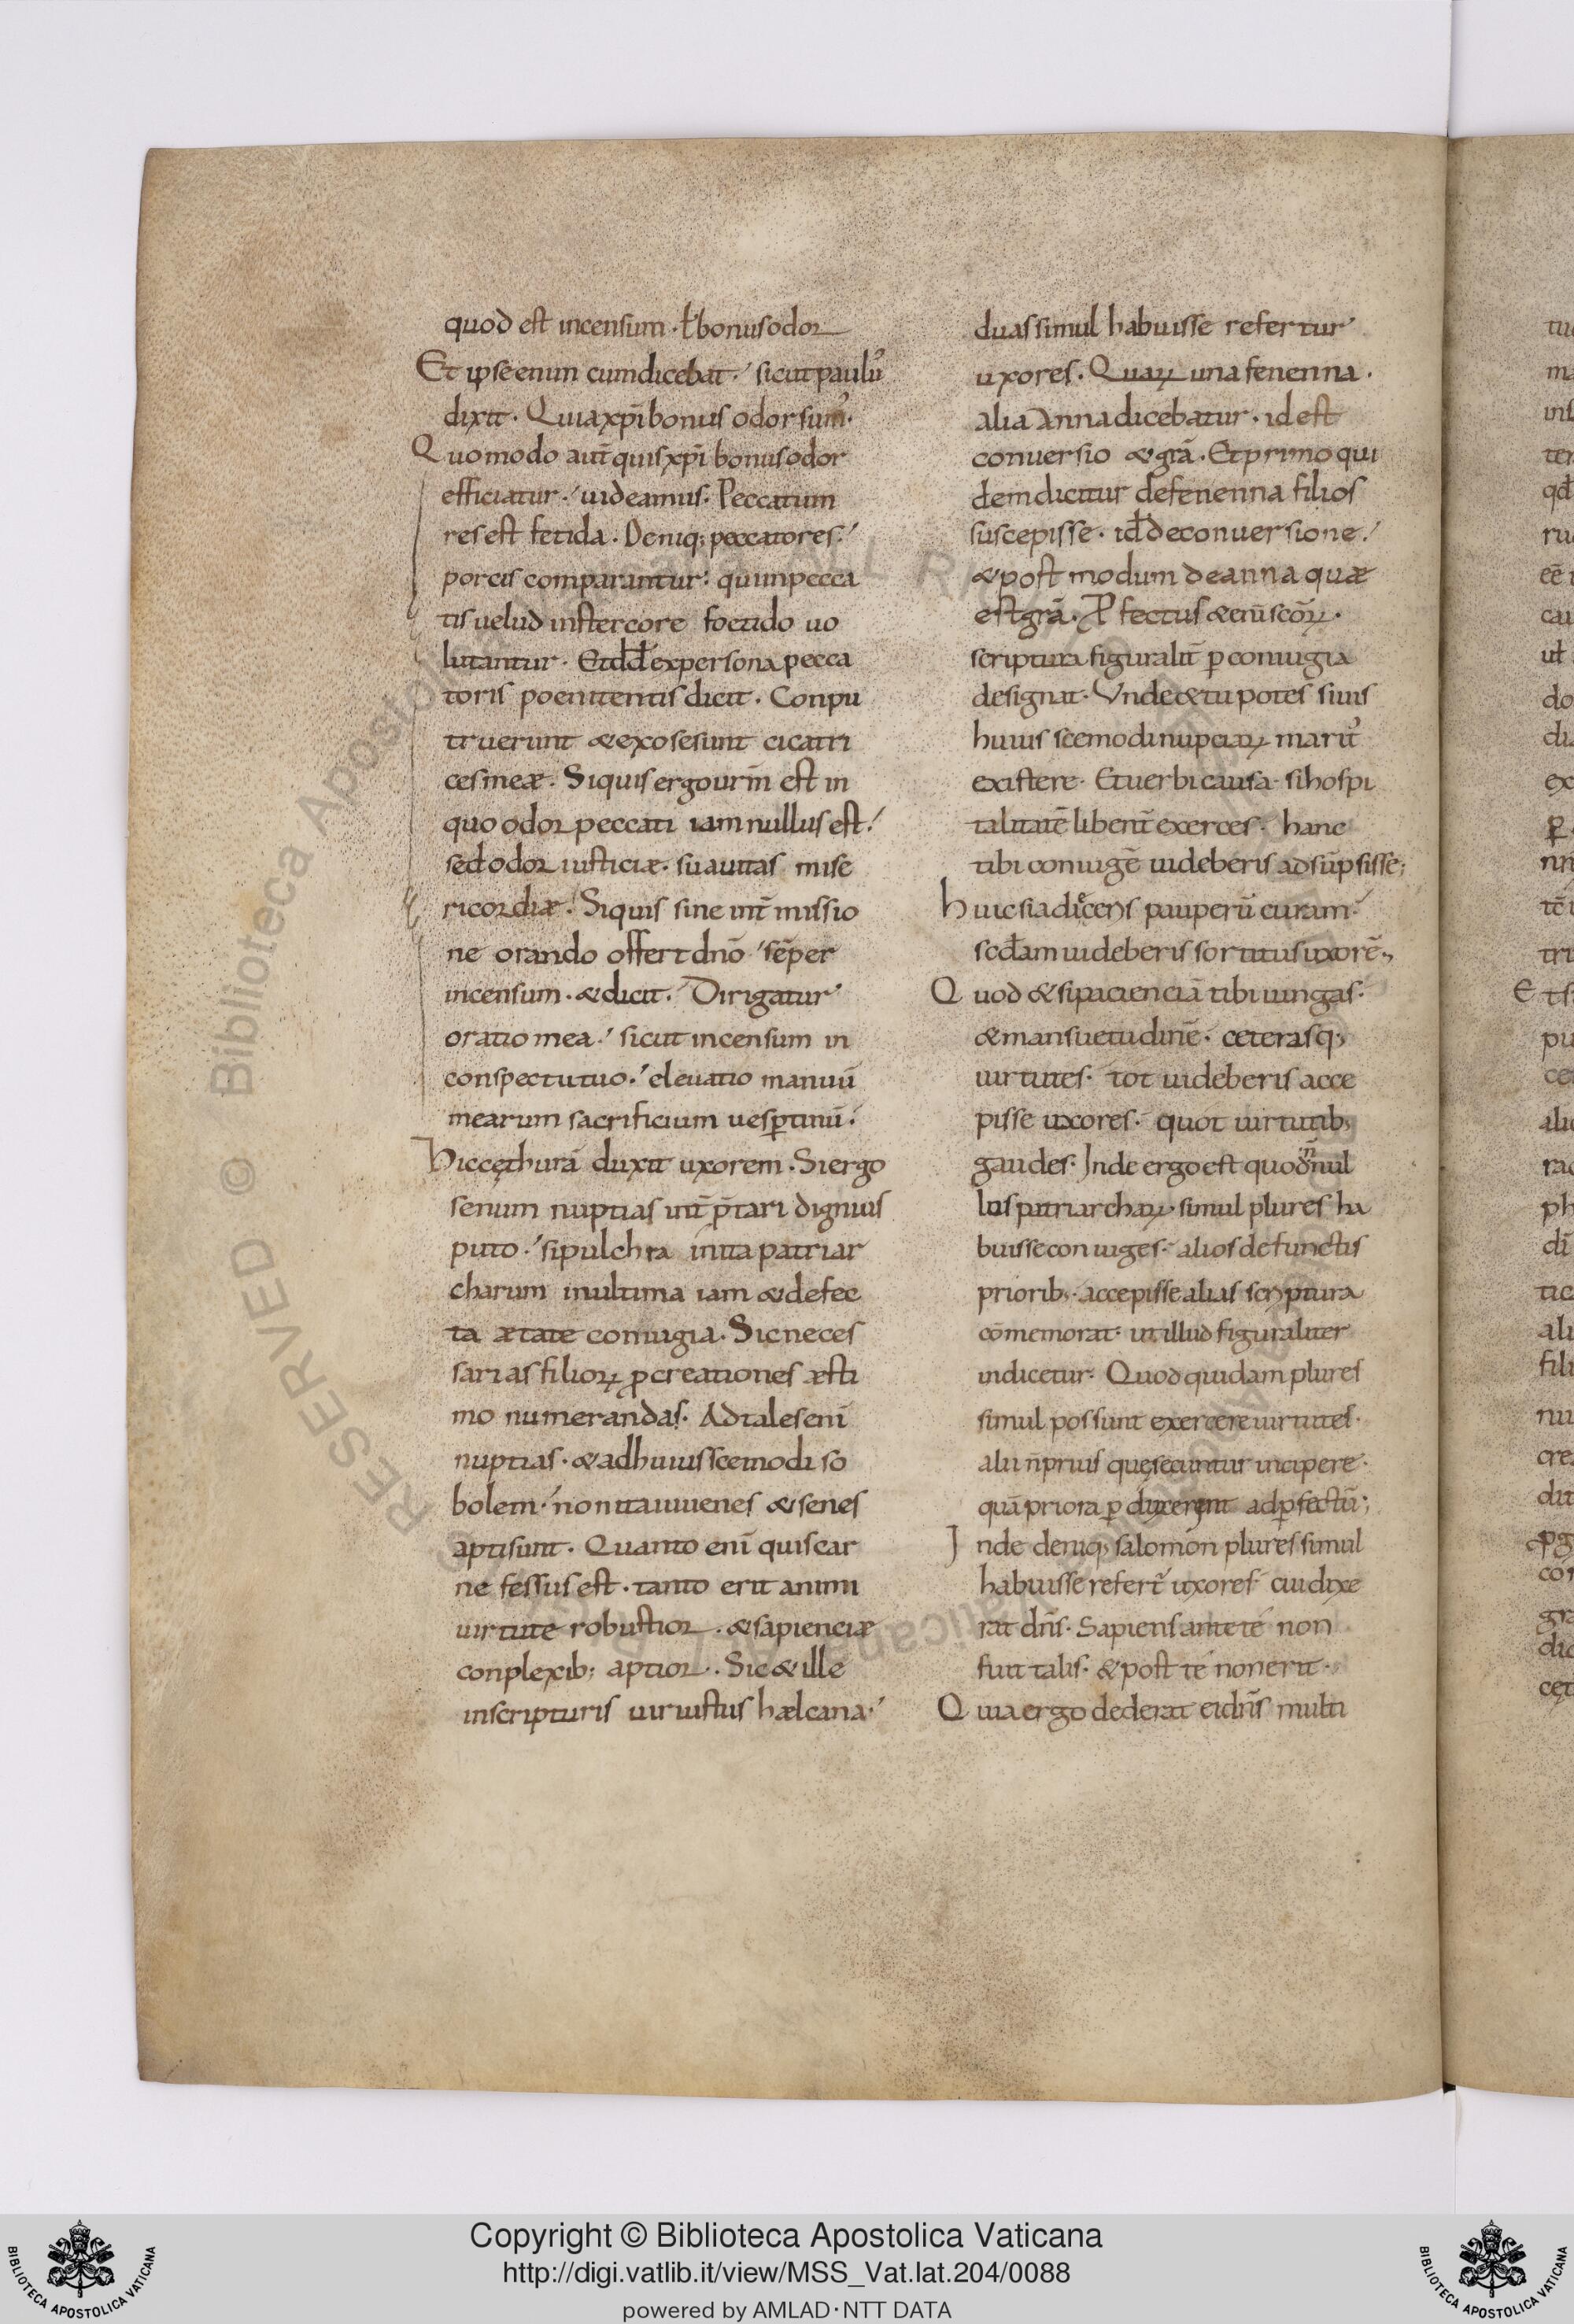 quod est incensum · ł bonus odor
Et ipse enim cum dicebat · sicut paulus
dixit · Quia xp̄i bonus odor sum᾽ ·
Quomodo aut̄ quis xp̄i bonus odor
efficiatur · uideamus · Peccatum
res est fetida · Deniq; peccatores ·
porcis comparantur · qui in pecca
tis uelud in stercore foetido uo
lutantur · Et dd̄ ex persona pecca
toris poenitentis dicit · Conpu
truerunt & exosesunt cicatri
ces meæ · Siquis ergo ur̄m est in
quo odor peccati iam nullus est ·
sed odor iusticiæ · suauitas mise
ricordiæ · Siquis sine int̄missio
ne orando offert dnō sēper
incensum · & dicit · Dirigatur
oratio mea · sicut incensum in
conspectu tuo · eleuatio manuū
mearum sacrificium uesptinū ·
Hic cęthurā duxit uxorem · Si ergo
senum nuptias int̄p̄tari dignius
puto · si pulchra in ita patriar
charum in ultima iam & defec
ta ætate coniugia · Sic neces
sarias filioꝝ ꝓcreationes æsti
mo numerandas · Ad tales enī
nuptias · & ad huiusscemodi so
bolem · non ita iuuenes & senes
apti sunt · Quanto enī quis car
ne fessus est · tanto erit animi
uirtute robustior · & sapienciæ
conplexib; aptior · Sic & ille
in scripturis uir iustus hælcana ·
duas simul habuisse refertur
uxores · Quaꝝ una fenenna ·
alia Anna dicebatur · id est
conuersio & grā · Et primo qui
dem dicitur de fenenna filios
suscepisse · id̄ de conuersione ·
& post modum de anna quæ
est grā · Ꝓfectus & enī scōꝝ ·
scriptura figuralit̄ ꝑ coniugia
designat · Unde & tu potes si uis
huiusscemodi nupciaꝝ marit᾽
existere · Et uerbi causa · si hospi
talitatē libent̄ exerces · hanc
tibi coniugē uideberis adsūpsisse;
huic si adicens pauperū curam ·
scd̄am uideberis sortitus uxorē ·
Quod & si paciencīa tibi iungas ·
& mansuetudinē · ceterasq;
uirtutes · tot uideberis acce
pisse uxores · quot uirtutib;
gaudes · Inde ergo est quod n̄nul
los patriarchaꝝ simul plures ha
buisse coniuges · alios defunctis
priorib; · accepisse alias scriptura
cōmemorat · ut illud figuraliter
indicetur · Quod quidam plures
simul possunt exercere uirtutes ·
alii n̄ prius que secuntur incipere ·
quā priora ꝑduxerint ad ꝑfectū;
Inde deniq; salomon plures simul
habuisse refert᾽ uxores · cui dixe
rat dn̄s · Sapiens ante te non
fuit talis · & post te non erit ·
Quia ergo dederat ei dn̄s multi
Copyright © Biblioteca Apostolica Vaticana
http://digi.vatlib.it/view/MSS_Vat.lat.204/0088
powered by AMLAD·NTT DATA
BIBLIOTECA APOSTOLICA VATICANA
BIBLIOTECA APOSTOLICA VATICANA